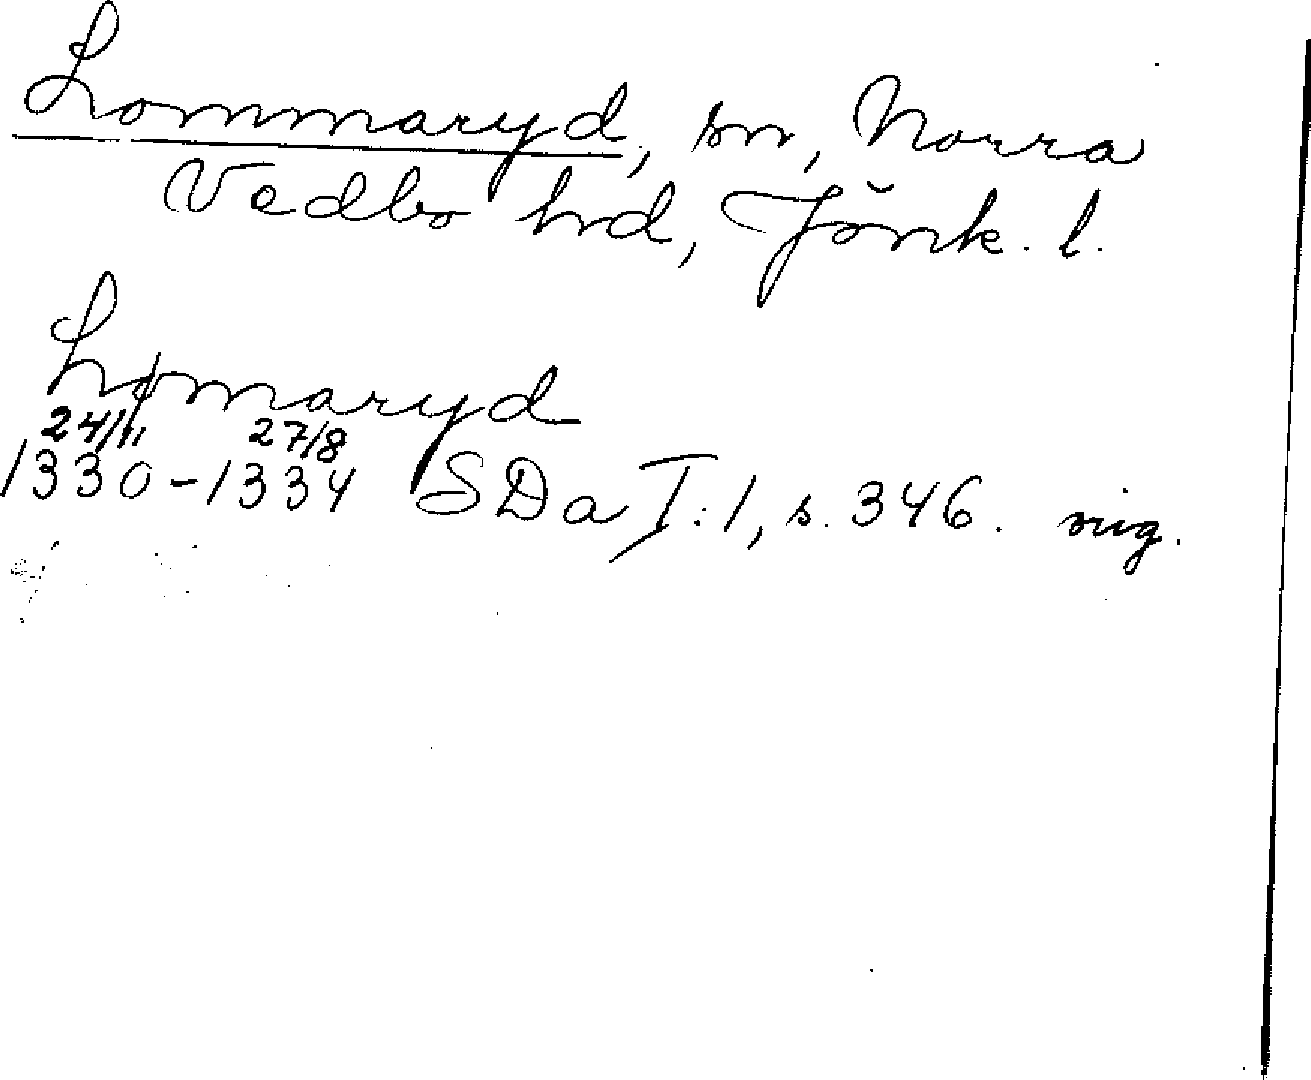 Lommaryd, sn, Norra
Vedbo hrd, Jönk. l.
Lømaryd
24/11 27/8
1330-1334 SDa I:1, s. 346. sig.